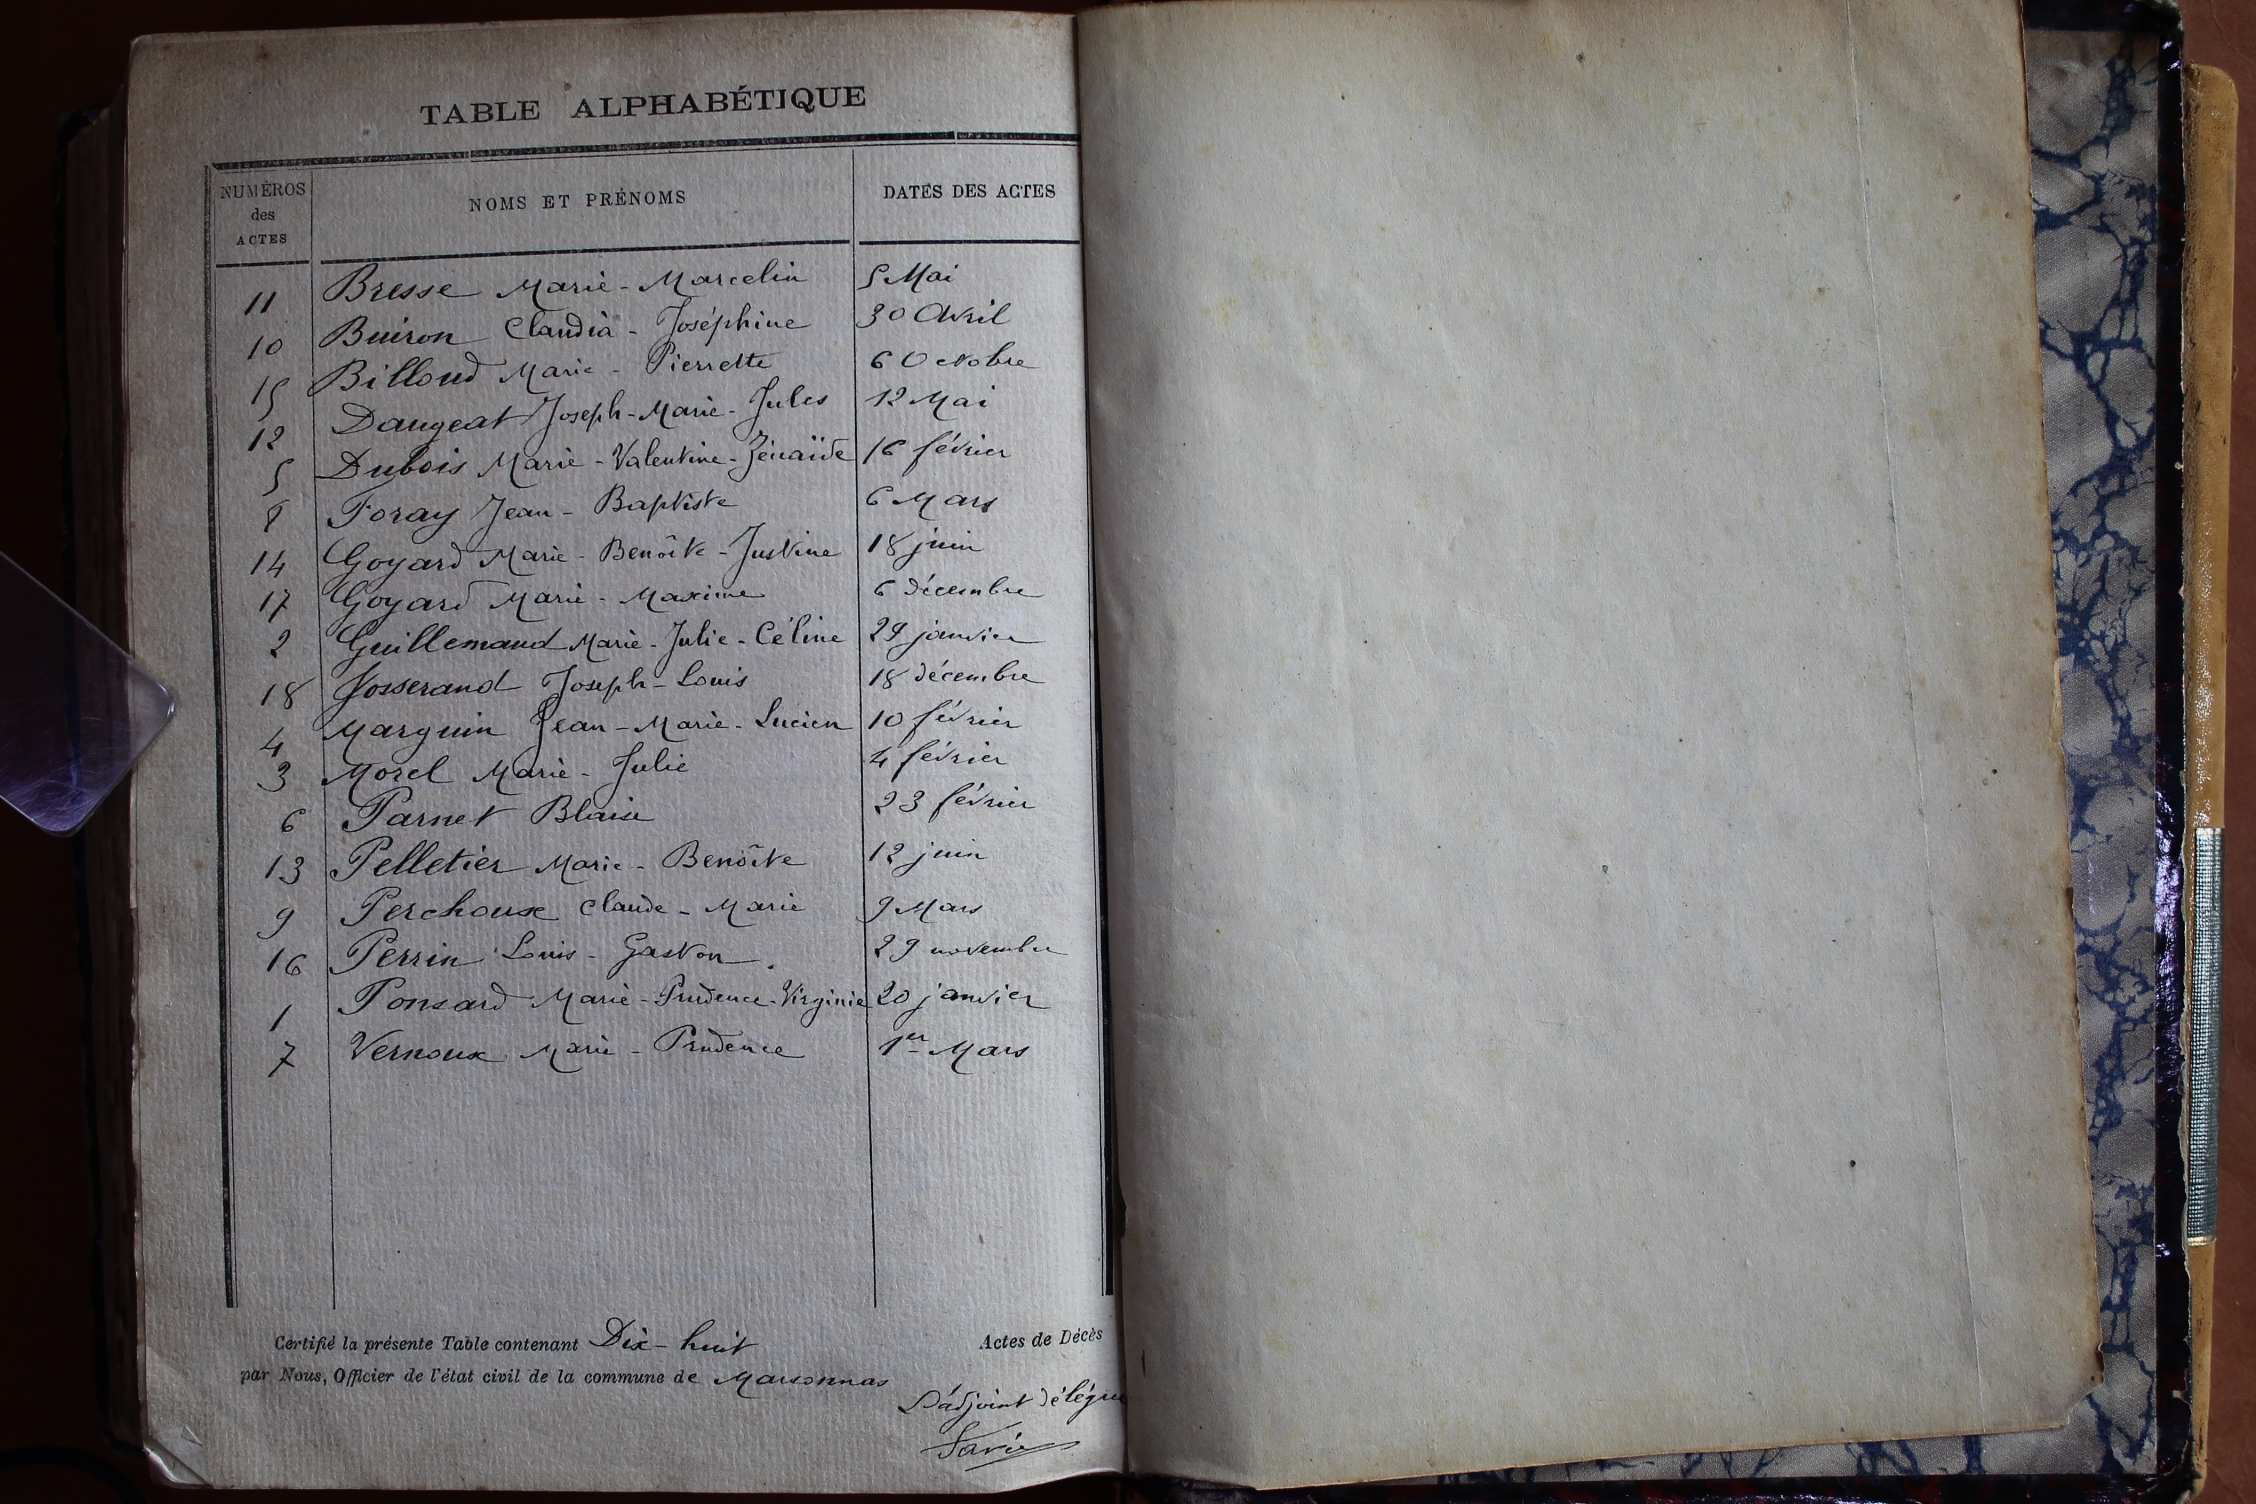 TABLE ALPHABÉTIQUE
NUMÉROS des ACTES NOMS ET PRÉNOMS DATES DES ACTES
11 Bresse Marie-Marcelin 5 Mai
10 Buiron Claudia-Joséphine 30 Avril
15 Billoud Marie-Pierrette 6 Octobre
12 Daugeat Joseph-Marie-Jules 12 Mai
5 Dubois Marie-Valentine-Zénaïde 16 février
8 Foray Jean-Baptiste 6 Mars
14 Goyard Marie-Benoîte-Justine 18 juin
17 Goyard Marie-Maxime 6 décembre
2 Guillemaud Marie-Julie-Céline 29 janvier
18 Josserand Joseph-Louis 18 décembre
4 Marguin Jean-Marie-Lucien 10 février
3 Morel Marie-Julie 4 février
6 Parnet Blaise 23 février
13 Pelletier Marie-Benoîte 12 juin
9 Perchoux Claude-Marie 9 Mars
16 Perrin Louis-Gaston 29 novembre
1 Ponsard Marie-Prudence-Virginie 20 janvier
7 Vernoux Marie-Prudence 1er Mars
Certifié la présente Table contenant Dix-huit Actes de Décès
par Nous, Officier de l'état civil de la commune de Marsonnas
L'adjoint délégué